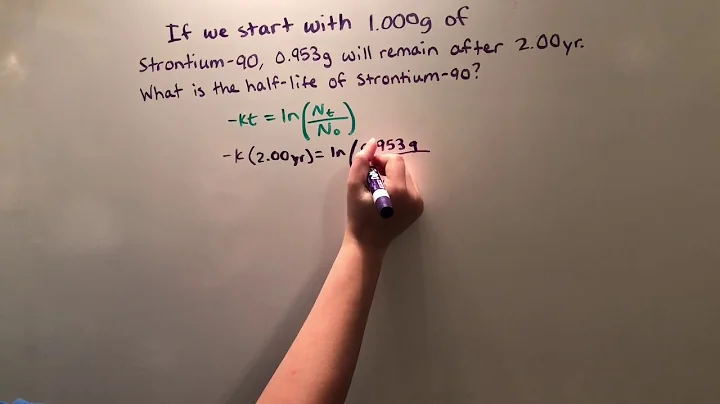 If we start with 1.000g of
Strontium-90, 0.953g will remain after 2.00yr.
What is the half-life of strontium-90?
-kt = ln(Nt/N₀)
-k(2.00yr) = ln(0.953g